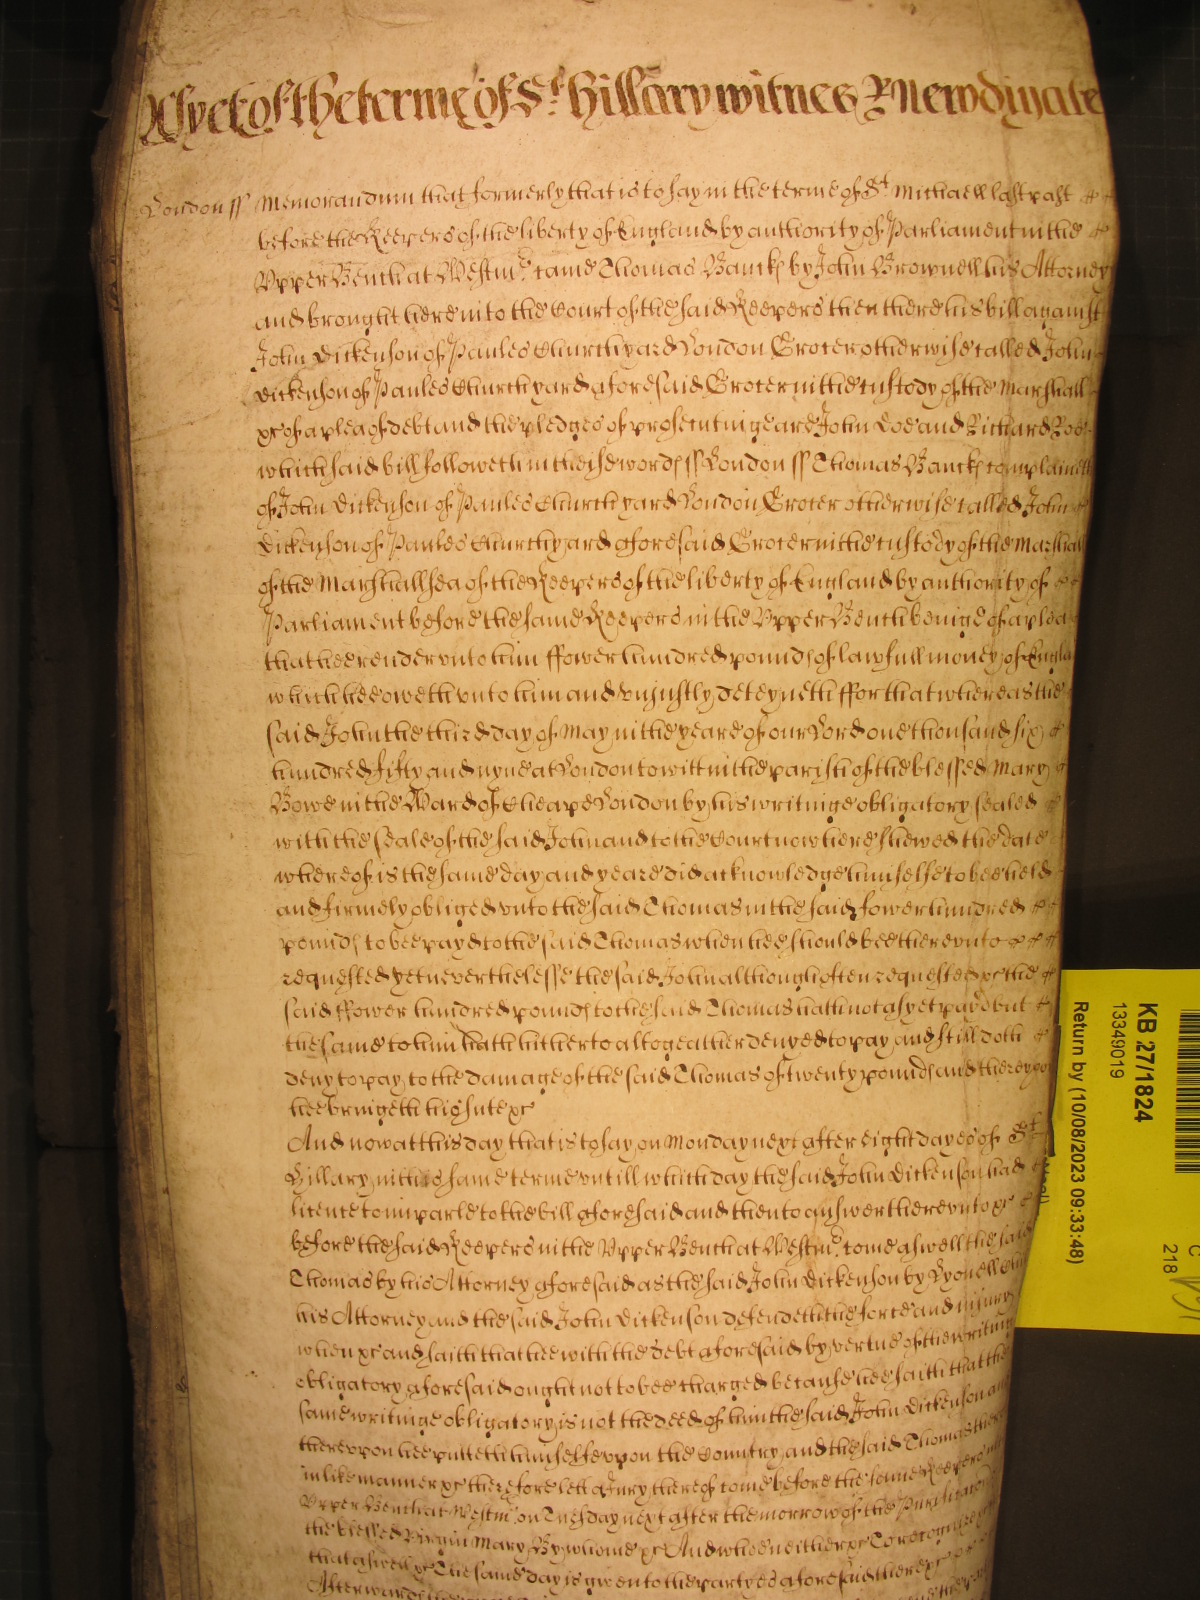 As yet of the terme of St. Hillary witnes R Newdigate
London ss Memorandum that formerly that is to say in the terme of St Michaell last past
before the Keepers of the liberty of England by authority of Parliament in the
Upper Bench at Westmr. came Thomas Banckes by John Brownell his Attorney
and brought here into the Court of the said Keepers then there his bill against
John Dickenson of Paules Churchyard London Grocer otherwise called John
Dickenson of Paules Churchyard aforesaid Grocer in the custody of the Marshall
xc of a plea of debt and the pledges of prosecutinge are John Doe and Richard Roe
which said bill followeth in these words ss London ss Thomas Banckes complaineth
of John Dickenson of Paules Churchyard London Grocer otherwise called John
Dickenson of Paules Churchyard aforesaid Grocer in the custody of the Marshall
of the Marshallsea of the Keepers of the liberty of England by authority of
Parliament before the same Keepers in the Upper Bench beinge of a plea
that hee render unto him ffower hundred pounds of lawfull money of England
which hee oweth unto him and unjustly deteyneth ffor that whereas the
said John the third day of May in the yeare of our Lord one thousand six
hundred fifty and nyne at London to witt in the parish of the blessed Mary
Bowe in the Ward of Cheape London by his writinge obligatory sealed
with the seale of the said John and to the Court now here shewed the date
whereof is the same day and yeare did acknowledge himselfe to bee held
and firmely obliged unto the said Thomas in the said fower hundred
pounds to bee payd to the said Thomas when hee should bee thereunto
requested yet neverthelesse the said John although often requested xc the
said ffower hundred pounds to the said Thomas hath not as yet payd but
the same to him hath hitherto altogeather denyed to pay and still doth
deny to pay to the damage of the said Thomas of twenty pounds and thereupon
hee bringeth his sute xc
And now at this day that is to say on Monday next after eight dayes of St
Hillary in this same terme untill which day the said John Dickenson had
licence to imparle to the bill aforesaid and then to answer thereunto xc
before the said Keepers in the Upper Bench at Westmr. come aswell the said
Thomas by his Attorney aforesaid as the said John Dickenson by Lyonell
his Attorney and the said John Dickenson defendeth the force and injury
when xc and saith that hee with the debt aforesaid by vertue of the writinge
obligatory aforesaid ought not to bee charged because hee saith that the
same writinge obligatory is not the deed of him the said John Dickenson and
thereupon hee putteth himselfe upon the Country and the said Thomas
in like manner xc therefore lett a Jury thereof come before the same Keepers in
Upper Bench at Westmr. on Tuesday next after the morrow of the Purificacon
the blessed Virgin Mary By whome xc And who neither xc To recognize
that aswell xc The same day is given to the partyes aforesaid there xc
Afterwards
KB 27/1824
13349019
Return by (10/08/2023 09:33:48)
218